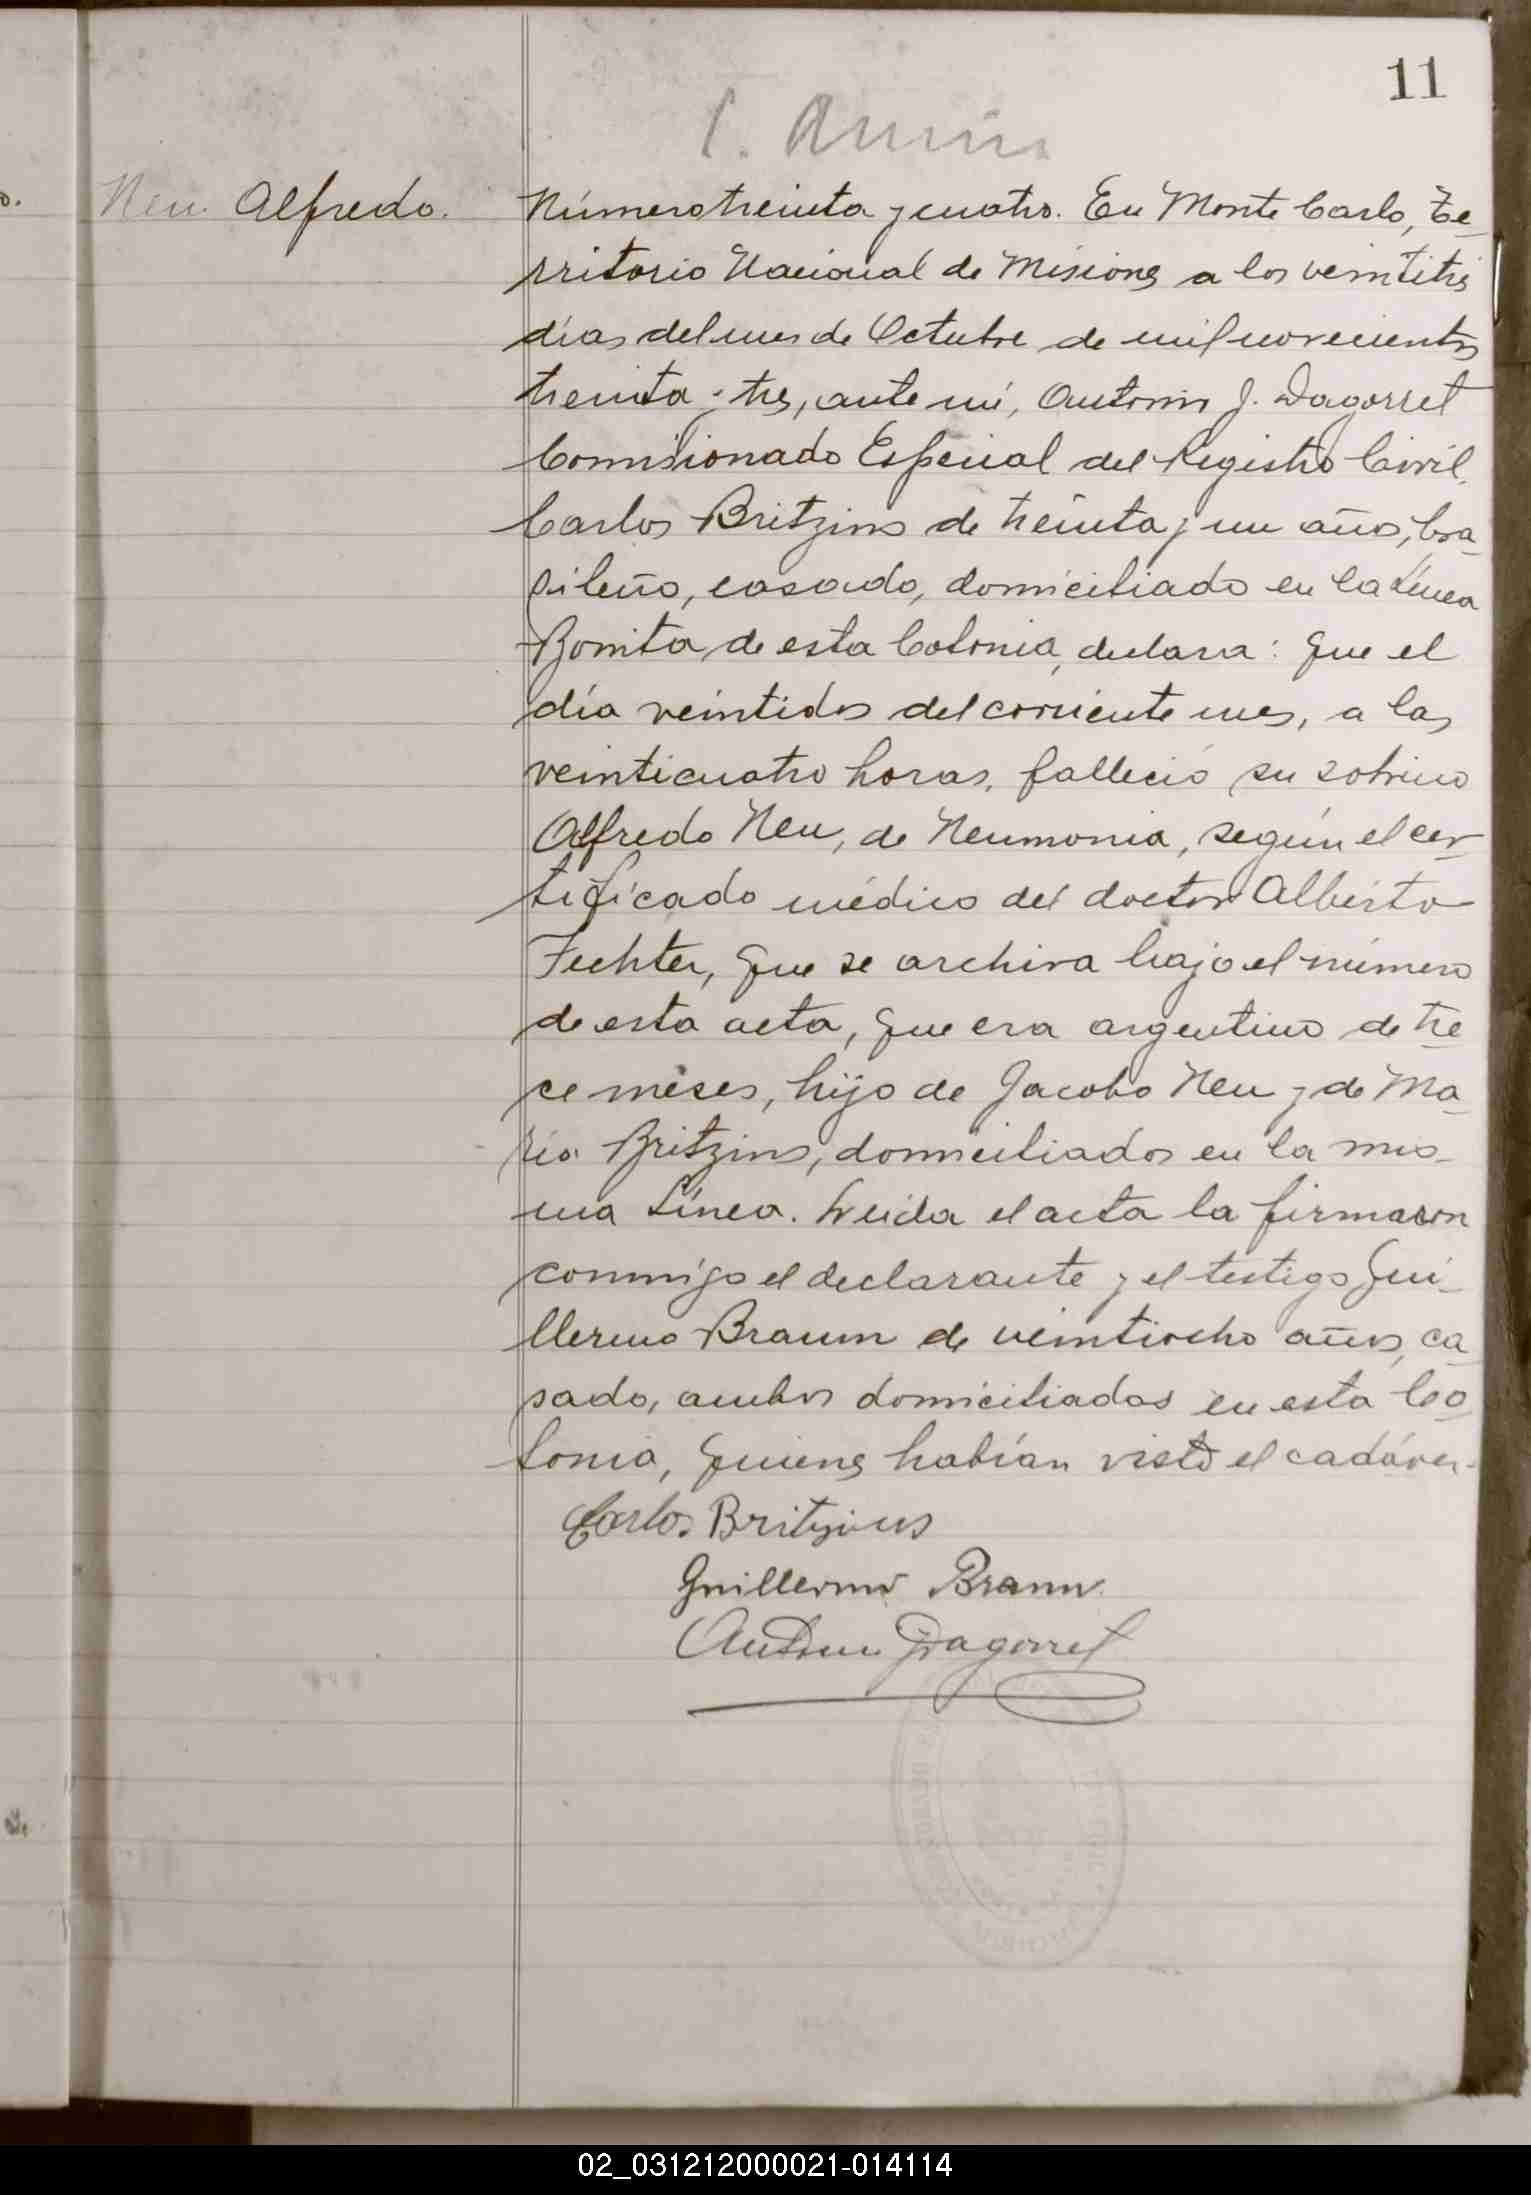 11
Neu Alfredo.
Número treinta y cuatro. En Monte Carlo, Te-
rritorio Nacional de Misiones a los veintitrés
días del mes de Octubre de mil novecientos
treinta y tres, ante mí, Antonio J. Dagorret
Comisionado Especial del Registro Civil,
Carlos Britzius de treinta y un año, bra-
sileño, casado, domiciliado en la Línea
Bonita de esta Colonia, declara: Que el
día veintidos del corriente mes, a las
veinticuatro horas, falleció su sobrino
Alfredo Neu, de Neumonia, según el cer-
tificado médico del doctor Alberto
Fechter, que se archiva bajo el número
de esta acta, que era argentino de tre-
ce meses, hijo de Jacobo Neu y de Ma-
ría Britzius, domiciliados en la mis-
ma Línea. Leida el acta la firmaron
conmigo el declarante y el testigo Gui-
llermo Braum de veintiocho años, ca-
sado, ambos domiciliados en esta Co-
lonia, quienes habían visto el cadáver.
Carlos Britzius
Guillermo Braun
Antonio Dagorret
02_031212000021-014114